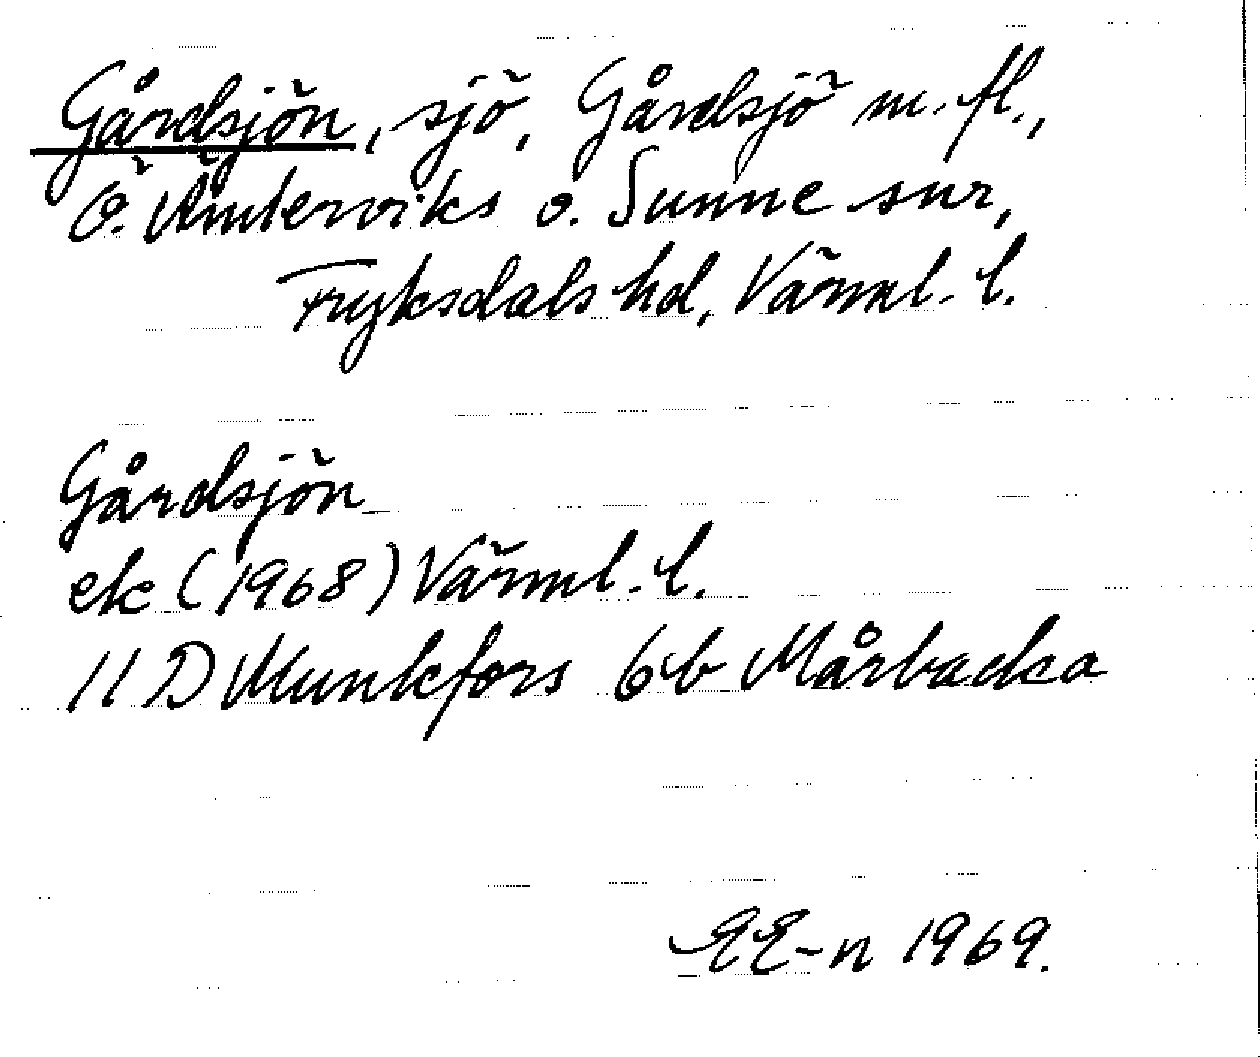 Gårdsjön, sjö, Gårdsjö m. fl.,
Ö. Ämterviks o. Sunne snr,
Fryksdals hd, Värml. l.
Gårdsjön
ek (1968) Värml. l.
11 D Munkfors 6b Mårbacka
EE-n 1969.